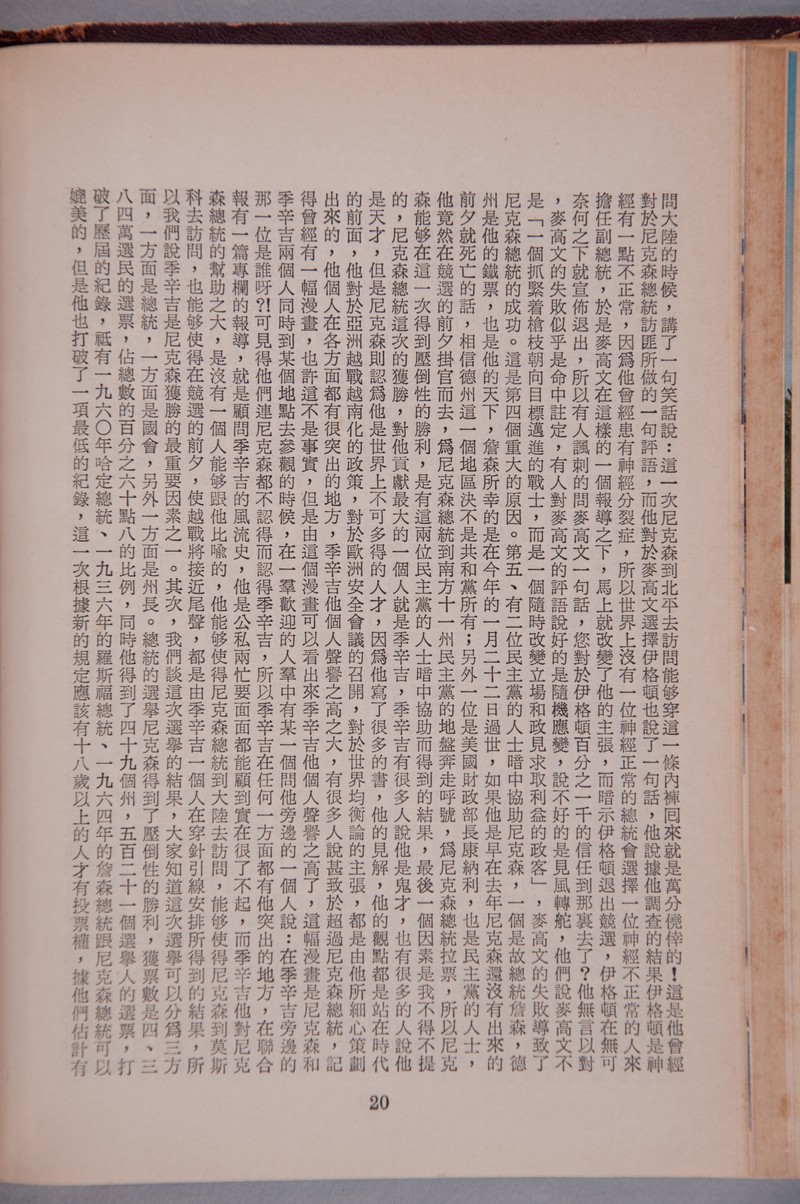 問大陸的時候，講了一句笑話說：這一次尼克森到北平去訪問能够穿這一條內褲囘來就是萬分僥倖的！這是他曾經
對於尼克森總統訪匪所做的一句評語，而他對於麥高文選擇伊格頓也說了一句話，他說據他調查的結果伊格頓是神
經有一點不正常，因爲他曾經患有神經分裂症，所以世界上沒有一位神經正常的總統會選擇一位神經不正常的人來
擔任副總統，於是麥高文在這樣的一個報導之下，馬上就改變了他的主張，而暗示伊格頓退出競選，伊格頓在無可
奈何之下就宣佈退出，所以有人諷刺的問麥高文一句話，您對於伊格頓百分之一千的信任到那裏去了？他無言以對
，麥高文的失敗似乎是命中註定，有人對麥高文的評語說好的是隨機應變，說不好的是見風轉舵，他們說麥高文不
是「一個抓緊着槍枝朝向目標邁進的戰士，而是一個隨時改變立場和政見求取利益的政客」，麥高文的失敗導致了
尼克森總統的成功。這是第四個重大的原因。第五、有二位民主黨的人士暗中協助尼克森，一個是故總統詹森，德
州是他的鐵票，也是他的天下，詹森所幸的是在今年的一月二十二日過世，如果他是早在去年尼克森還沒有出來的
前夕就死亡的話，相信德州這一個地區決不是共和黨所有；另外一位是美國財政部長康納利，也是民主黨的人士，
他竟然在競選的前夕掛官而去，爲尼克森總統到南方十一州民主黨的地盤奔走呼號，爲尼克森總統拉票，所以尼克
森能够在這一次得到壓倒性的勝利，是有這兩位民主黨的人士暗中協助而得到的結果，最後一個因素是我不得不提
的，尼克森總統這次的獲勝，對他貢獻最大的一個人就是季辛吉，季辛吉有很多人說他是鬼才，也有很多的人說他
是天才，但是尼克森則認爲他是世界上不可多得的人才，因爲他寫了很多的書，他的見解，他的觀點都是站在時代
的前面，他對於亞洲越戰越南化的政策，對於歐洲安全會議的召開，對於世界均衡論的主張，都是由他所細心策劃
出來的，他個人在各方面都有很突出的地方，季辛吉他個人聲譽之高之大，有很多人說甚致於超過尼克森總統，記
得曾經有一幅漫畫，也許這不是事實，但是由這個漫畫可以看出來季辛吉他個人聲譽之高了，這幅漫畫是尼克森和
季辛吉兩個人同時到某個地點去參觀的時候，在一羣歡迎的人羣中有某一個問他旁邊的一個人說：在季辛吉旁邊的
那一位是誰呀?!可見得他們連尼克森都不認得而認得季辛吉，所以季辛吉在任何一方面都有他突出的地方，在聯合
報有一篇專欄的報導，就是顧問季辛吉的風流史，他是公私兩忙要面面都能顧到實在很了不起，而季辛吉他對尼克
森總統的幫助之大，是沒有一個人能够跟他比喩的，他能够使得尼克森總統到大陸去訪問，能够使得尼克森到莫斯
科去訪問，也能够使得在競選的前夕，使越戰將接近尾聲，都是由季辛吉一個人在穿針引線安排所得到的結果，所
以我們說季辛吉是尼克森獲勝的最重要因素之一。其次，我們談這次選擧的結果，大家知道這次選擧可以分爲三方
面，一方面是總統，一方面是國會，另外一方面是州長。總統的選擧尼克森得到了壓倒性的勝利，獲票數是四、三
八四萬選民的選票，佔總數的百分之六十點八的比例，同時他得到了四十九個州，五百二十一個選擧人的選票，打
破了歷屆的紀錄，祗有一九六〇年哈定總統、一九三六年的羅斯福總統、一九六四年的詹森總統跟尼克森總統可以
媲美的，但是他也打破了一項最低的紀錄，這一次根據新的規定應該有十八歲以上的人才有投票權，據他們估計有
20